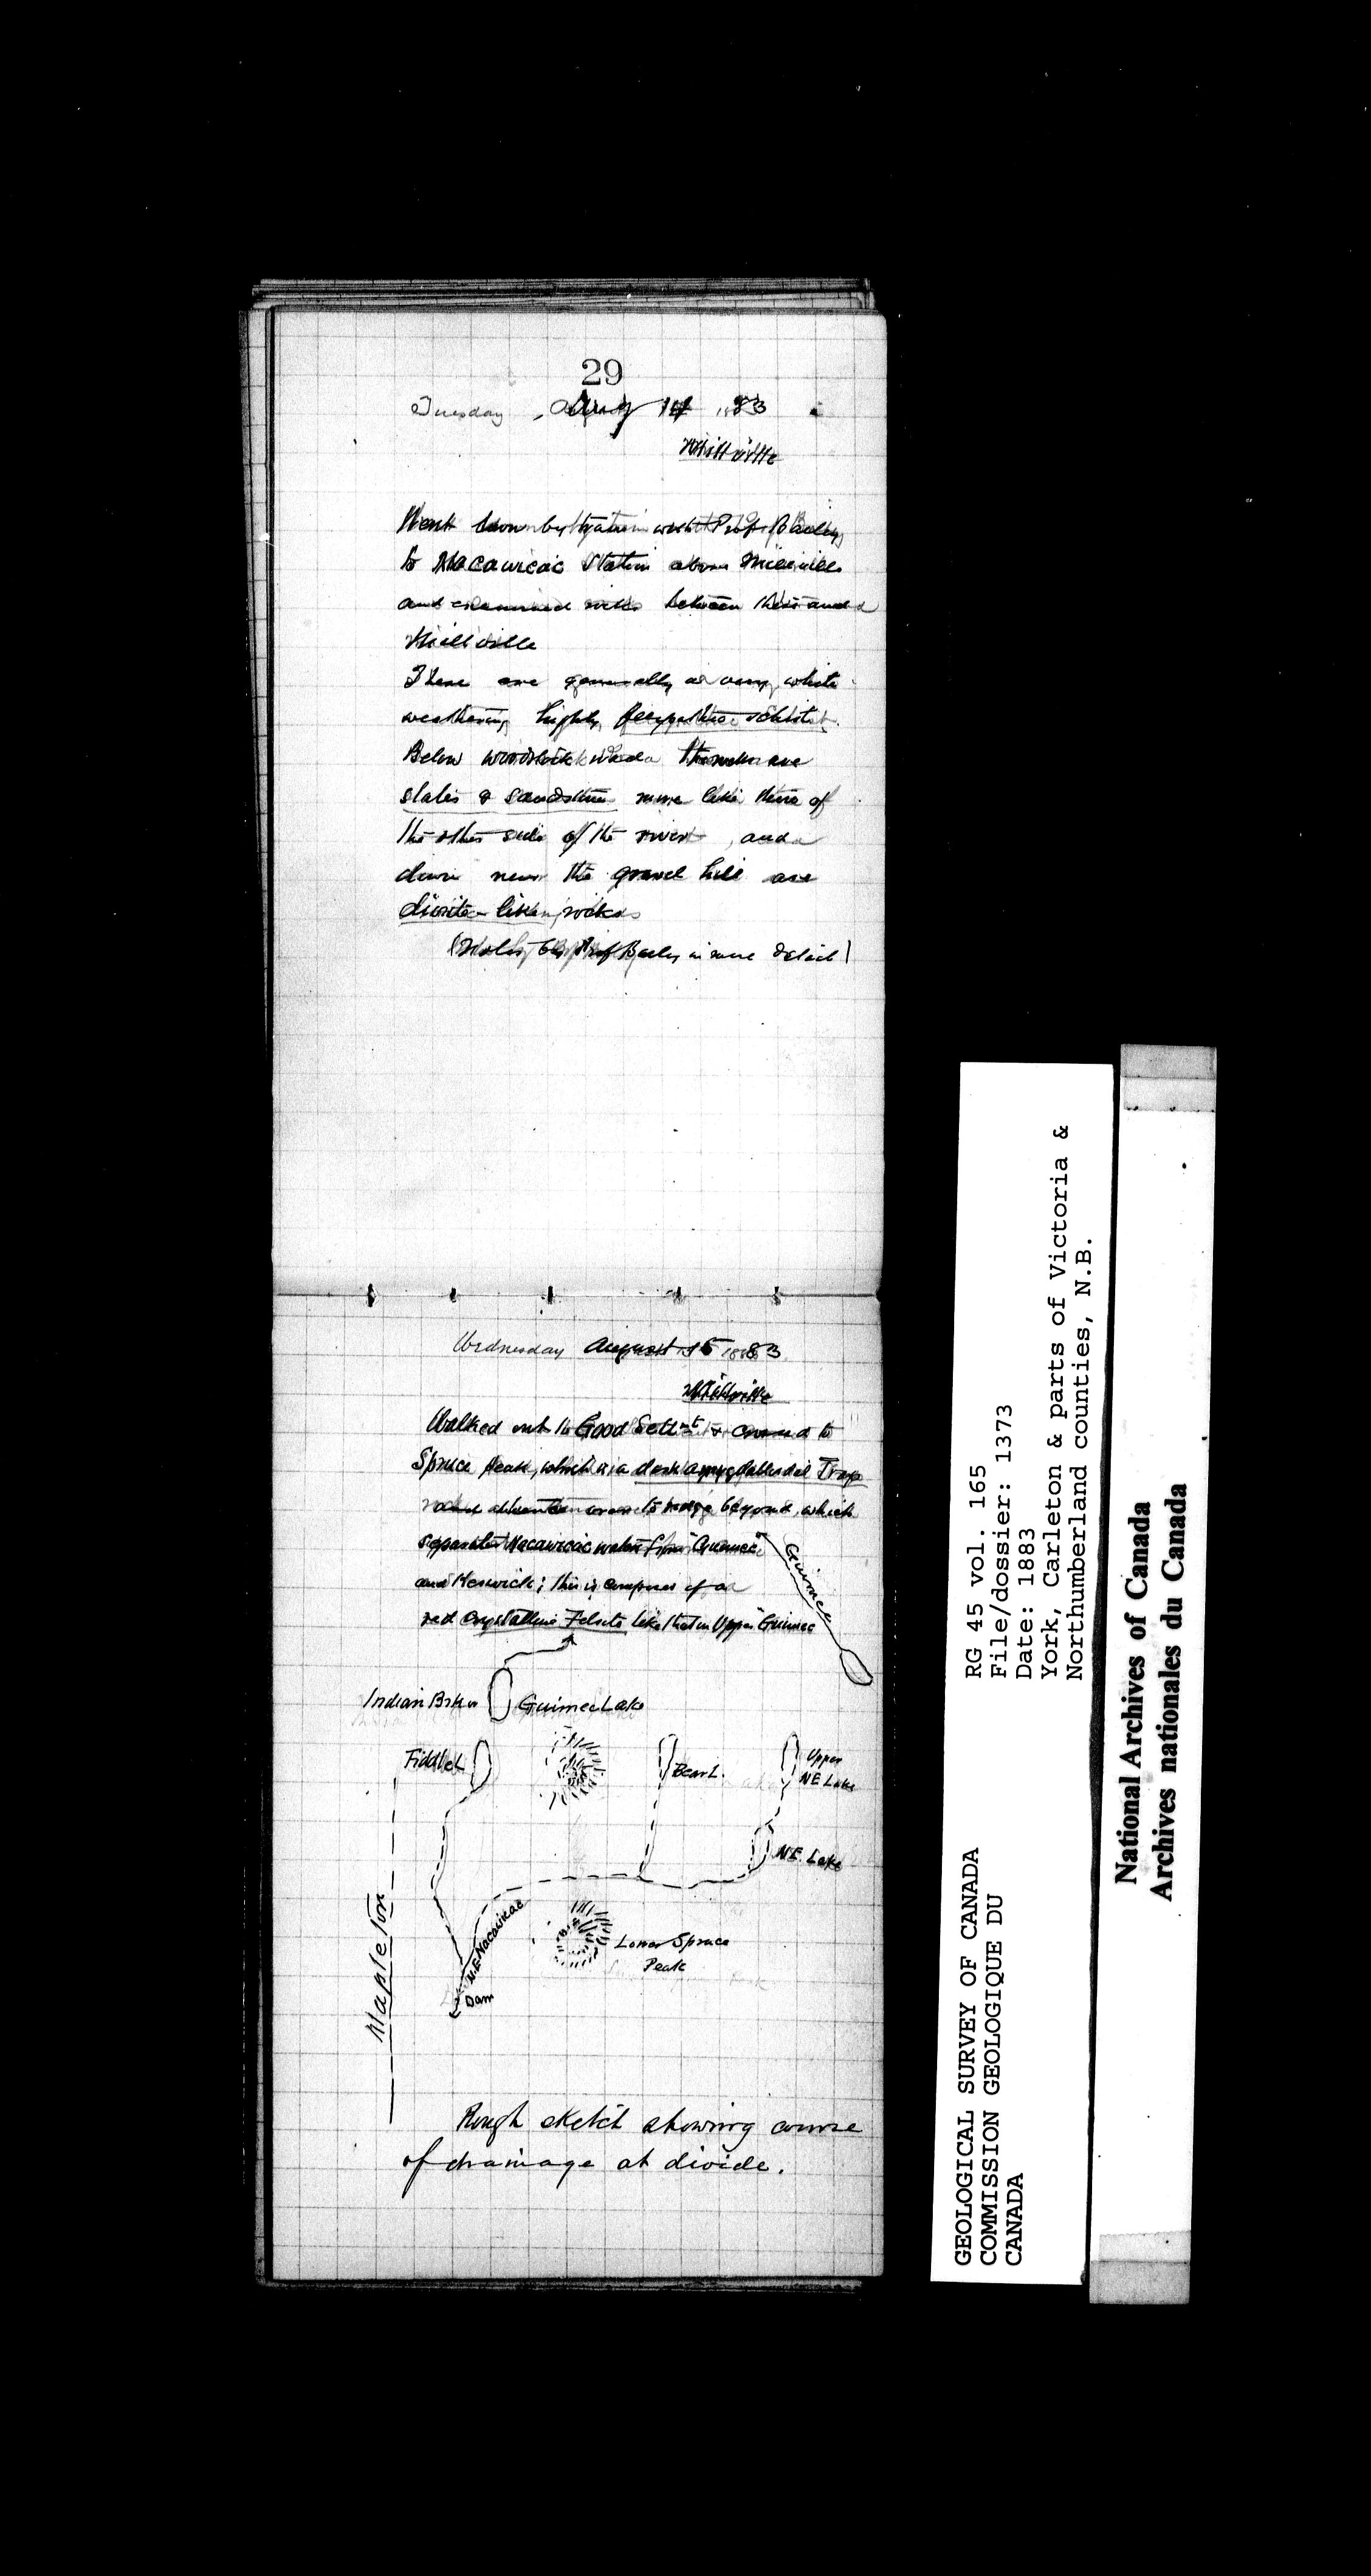 29
Tuesday, Aug 14 1883
Millville
Went down by train with Prof Bailey
to Nacawicac Station above Millville
and examined rocks between this and
Millville
These are generally a very white
weathering highly schist.
Below Woodstock road the rocks are
slates & sandstone more like those of
the other side of the river, and
down near the gravel hill are
diorite-like rocks
(Notes by Prof Bailey in more detail)
Wednesday August 15 1883
Millville
Walked out to Good Settmt & crossed to
Spruce Peak, which is a dark amygdaloidal Trap
rock to ridge beyond, which
separates Nacawicac waters from "Guimec"
and Keswick; this is composed of a
red crystalline Felsite like that on Upper Guimec
Guimec
Indian Brk
Guimec Lake
Fiddle L
Bear L.
Upper
NE Lake
N.E. Lake
N.E. Nacawicac
Dam
Lower Spruce
Peak
Mapleton
Rough sketch showing course
of drainage at divide.
GEOLOGICAL SURVEY OF CANADA
COMMISSION GEOLOGIQUE DU
CANADA
RG 45 vol. 165
File/dossier: 1373
Date: 1883
York, Carleton & parts of Victoria &
Northumberland counties, N.B.
National Archives of Canada
Archives nationales du Canada